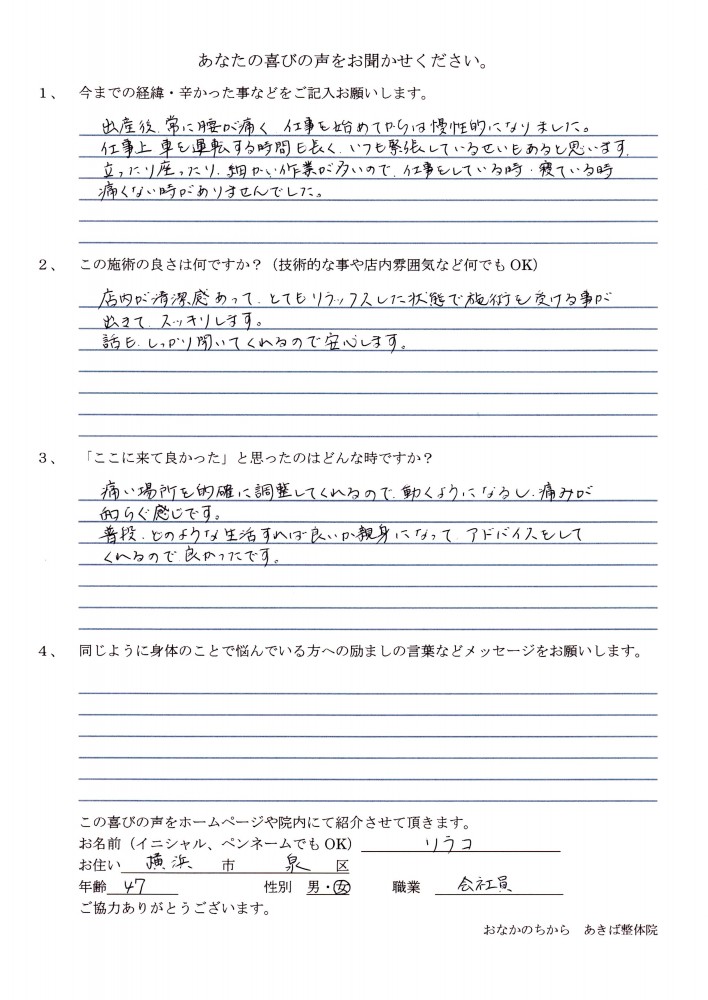 あなたの喜びの声をお聞かせください。
1、 今までの経緯・辛かった事などをご記入お願いします。
出産後、常に腰が痛く 仕事を始めてからは慢性的になりました。
仕事上 車を運転する時間も長く、いつも緊張しているせいもあると思います。
立ったり座ったり、細かい作業が多いので、仕事をしている時・寝ている時
痛くない時がありませんでした。
2、 この施術の良さは何ですか？（技術的な事や店内雰囲気など何でも OK）
店内が清潔感あって、とてもリラックスした状態で施術を受ける事が
出きて、スッキリします。
話も、しっかり聞いてくれるので安心します。
3、 「ここに来て良かった」と思ったのはどんな時ですか？
痛い場所を的確に調整してくれるので、動くようになるし、痛みが
和らぐ感じです。
普段、どのような生活すれば良いか親身になって、アドバイスをして
くれるので良かったです。
4、 同じように身体のことで悩んでいる方への励ましの言葉などメッセージをお願いします。
この喜びの声をホームページや院内にて紹介させて頂きます。
お名前（イニシャル、ペンネームでも OK） リラコ
お住い 横浜 市 泉 区
年齢 47 性別 男・女 職業 会社員
ご協力ありがとうございます。
おなかのちから あきば整体院